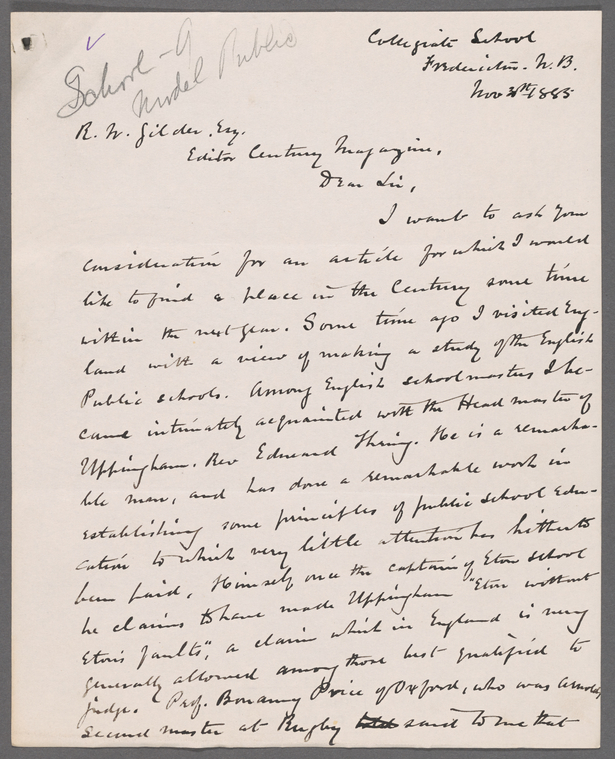 School - A
Model Public
Collegiate School
Fredericton - N. B.
Nov 30th 1885
R. W. Gilder, Esq.
Editor Century Magazine,
Dear Sir,
I want to ask your
consideration for an article for which I would
like to find a place in the Century some time
within the next year. Some time ago I visited Eng-
land with a view of making a study of the English
Public schools. Among English schoolmasters I be-
came intimately acquainted with the Head master of
Uppingham. Rev Edward Thring. He is a remarka-
ble man, and has done a remarkable work in
establishing some principles of public school edu-
cation to which very little attention has hitherto
been paid. Himself once the captain of Eton School
he claims to have made Uppingham "Eton without
Eton's faults", a claim which in England is very
generally allowed among those best qualified to
judge. Prof. Bonamy Price of Oxford, who was Arnold's
second master at Rugby said to me that